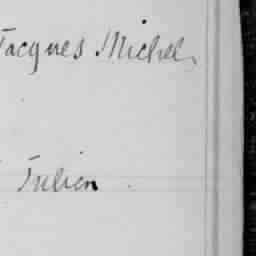 Jacques Michel,
Julien